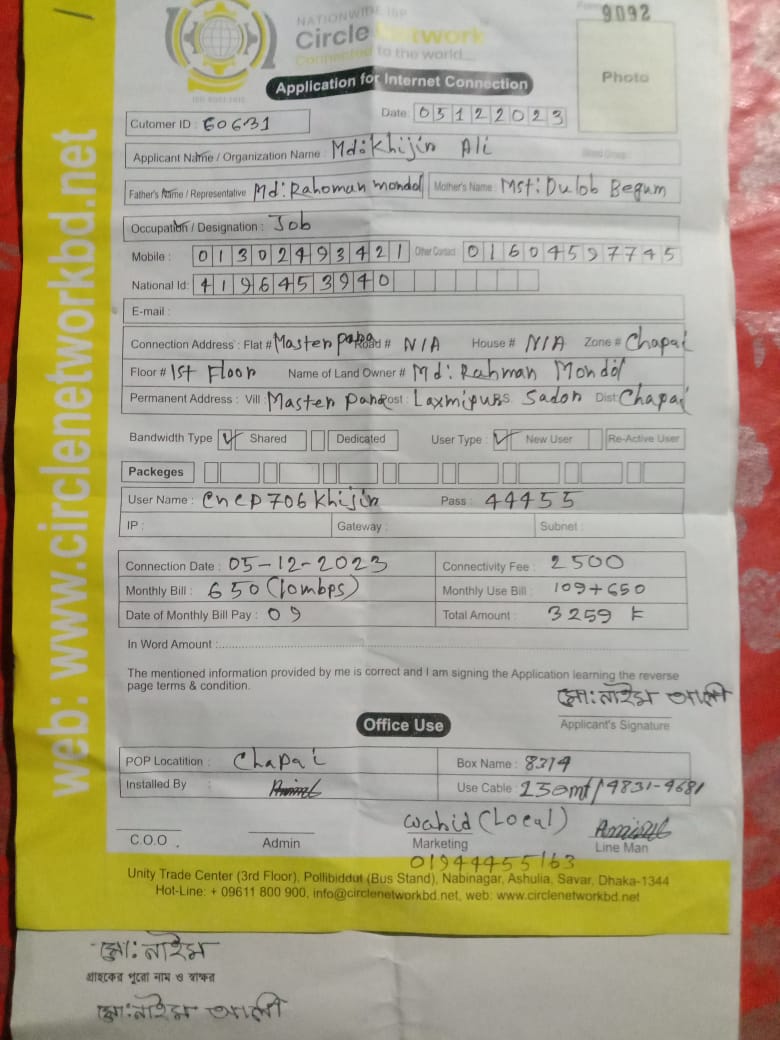 NATIONWIDE ISP
9092
Circle Network
Connected to the world...
Photo
Application for Internet Connection
Date 05122023
Cutomer ID : 60631
Applicant Name / Organization Name : Md: Khijin Ali
Father's Name / Representative Md: Rahoman mondol Mother's Name : Mst: Dulob Begum
Occupation / Designation : Job
Mobile : 01302493421 Other Contact 01604597745
National Id: 4196453940
E-mail :
Connection Address : Flat # Master para Road # N/A House # N/A Zone # Chapai
Floor # 1st Floor Name of Land Owner # Md: Rahman Mondol
Permanent Address : Vill : Master Para Post : Laxmipur P.S. Sador Dist: Chapai
Bandwidth Type Shared Dedicated User Type : New User Re-Active User
Packeges
User Name : cncp706khijin Pass : 44455
IP : Gateway : Subnet :
Connection Date : 05-12-2023 Connectivity Fee : 2500
Monthly Bill : 650 (10mbps) Monthly Use Bill : 109+650
Date of Monthly Bill Pay : 09 Total Amount : 3259 ৳
In Word Amount :
The mentioned information provided by me is correct and I am signing the Application learning the reverse
page terms & condition.
মো: নাইম আলী
Applicant's Signature
Office Use
POP Locatition : Chapai Box Name : 8314
Installed By : Use Cable : 250mt/4831-4681
Wahid (Local)
C.O.O Admin Marketing Line Man
01944455163
Unity Trade Center (3rd Floor), Pollibiddut (Bus Stand), Nabinagar, Ashulia, Savar, Dhaka-1344
Hot-Line: + 09611 800 900, info@circlenetworkbd.net, web: www.circlenetworkbd.net
web: www.circlenetworkbd.net
মো: নাইম
গ্রাহকের পুরো নাম ও স্বাক্ষর
মো: নাইম আলী